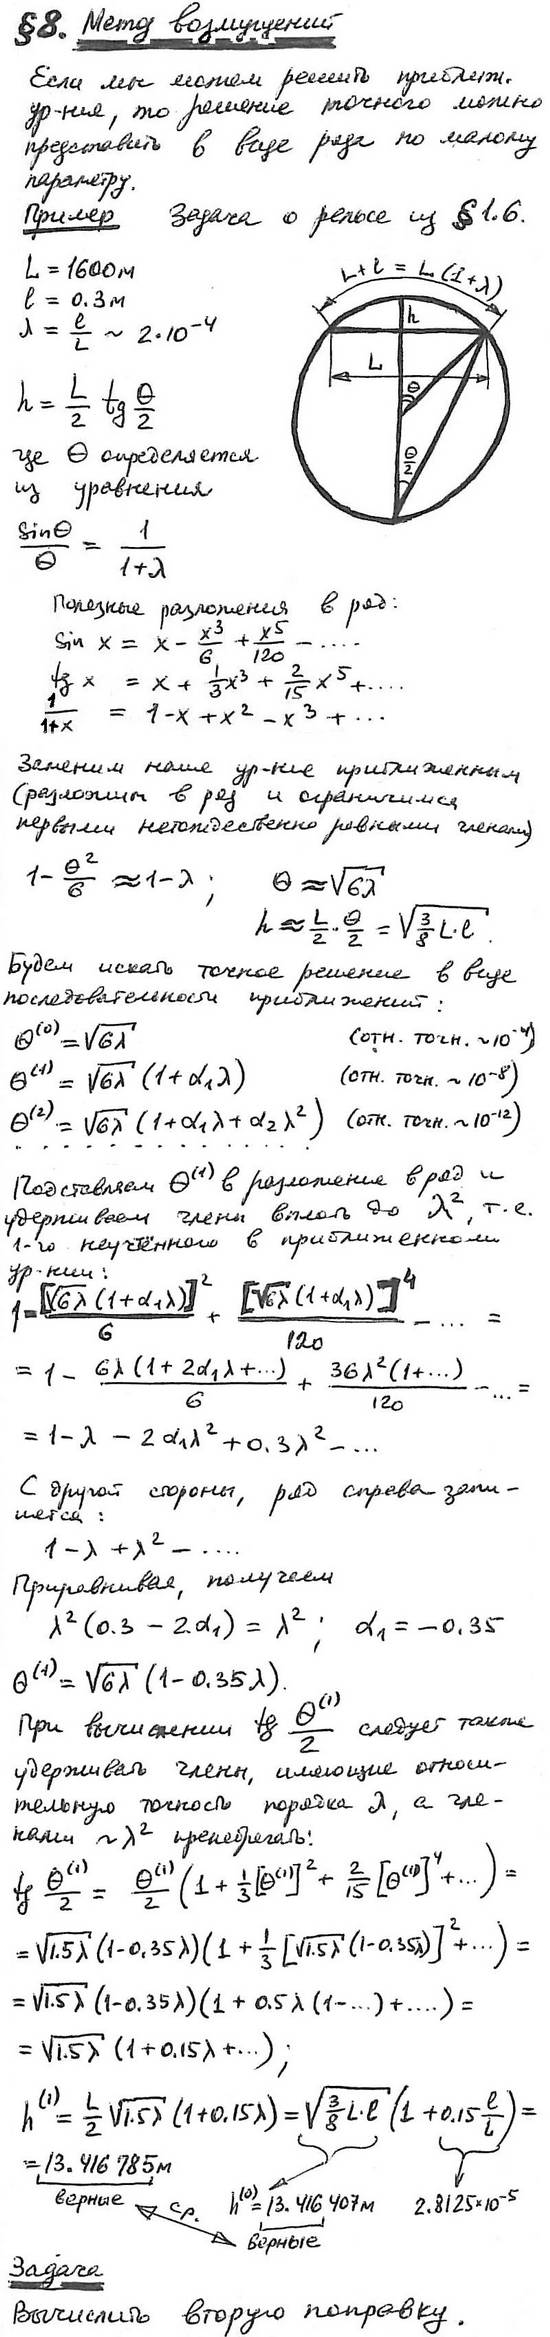 §8. Метод возмущений
Если мы можем решить приближ.
ур-ние, то решение точного можно
представить в виде ряда по малому
параметру.
Пример Задача о рельсе из §1.6.
L = 1600м
l = 0.3м
λ = l/L ~ 2·10⁻⁴
L+l = L(1+λ)
h
L
θ
θ/2
h = L/2 tg θ/2
где θ определяется
из уравнения
sinθ/θ = 1/(1+λ)
Полезные разложения в ряд:
sin x = x - x³/6 + x⁵/120 - ....
tg x = x + 1/3x³ + 2/15 x⁵ + ....
1/(1+x) = 1-x+x²-x³+...
Заменим наше ур-ние приближенным
(разложим в ряд и ограничимся
первыми нетождественно равными членами)
1-θ²/6 ≈ 1-λ; θ ≈ √6λ
h ≈ L/2 · θ/2 = √(3/8 L·l).
Будем искать точное решение в виде
последовательности приближений:
θ⁽⁰⁾ = √6λ (отн. точн. ~10⁻⁴)
θ⁽¹⁾ = √6λ (1+α₁λ) (отн. точн. ~10⁻⁸)
θ⁽²⁾ = √6λ (1+α₁λ+α₂λ²) (отн. точн. ~10⁻¹²)
. . . . . . . . . . . . . .
Подставляем θ⁽¹⁾ в разложение в ряд и
удерживаем члены вплоть до λ², т.е.
1-го неучтённого в приближенном
ур-нии:
1-[√6λ(1+α₁λ)]²/6 + [√6λ(1+α₁λ)]⁴/120 - ... =
= 1 - 6λ(1+2α₁λ+...)/6 + 36λ²(1+...)/120 - ... =
= 1-λ - 2α₁λ² + 0.3λ² - ...
С другой стороны, ряд справа запи-
шется:
1-λ+λ² - ....
Приравнивая, получаем
λ²(0.3 - 2α₁) = λ²; α₁ = -0.35
θ⁽¹⁾ = √6λ (1-0.35λ).
При вычислении tg θ⁽¹⁾/2 следует также
удерживать члены, имеющие относи-
тельную точность порядка λ, а чле-
нами ~λ² пренебрегать:
tg θ⁽¹⁾/2 = θ⁽¹⁾/2 (1 + 1/3[θ⁽¹⁾]² + 2/15 [θ⁽¹⁾]⁴ + ...) =
= √1.5λ (1-0.35λ)(1 + 1/3 [√1.5λ (1-0.35λ)]² + ...) =
= √1.5λ (1-0.35λ)(1 + 0.5λ(1-...) + ....) =
= √1.5λ (1+0.15λ+...);
h⁽¹⁾ = L/2 √1.5λ (1+0.15λ) = √(3/8 L·l) (1 + 0.15 l/L) =
= 13.416 785м
верные ср. h⁽⁰⁾ = 13.416 407м 2.8125×10⁻⁵
верные
Задача
Вычислить вторую поправку.